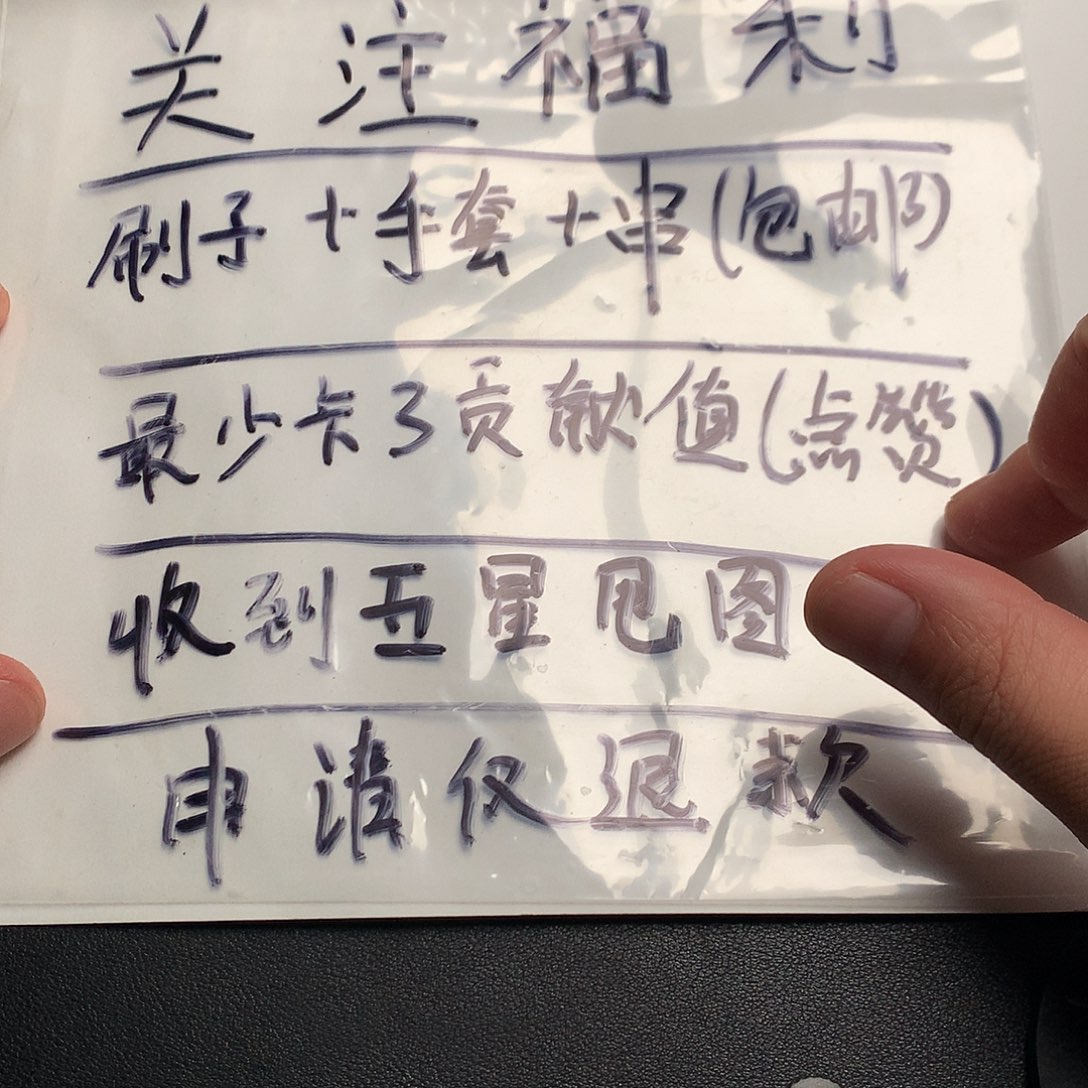 关注福利
刷子+手套+串(包邮)
最少卡3贡献值(点赞)
收到五星甩图
申请仅退款